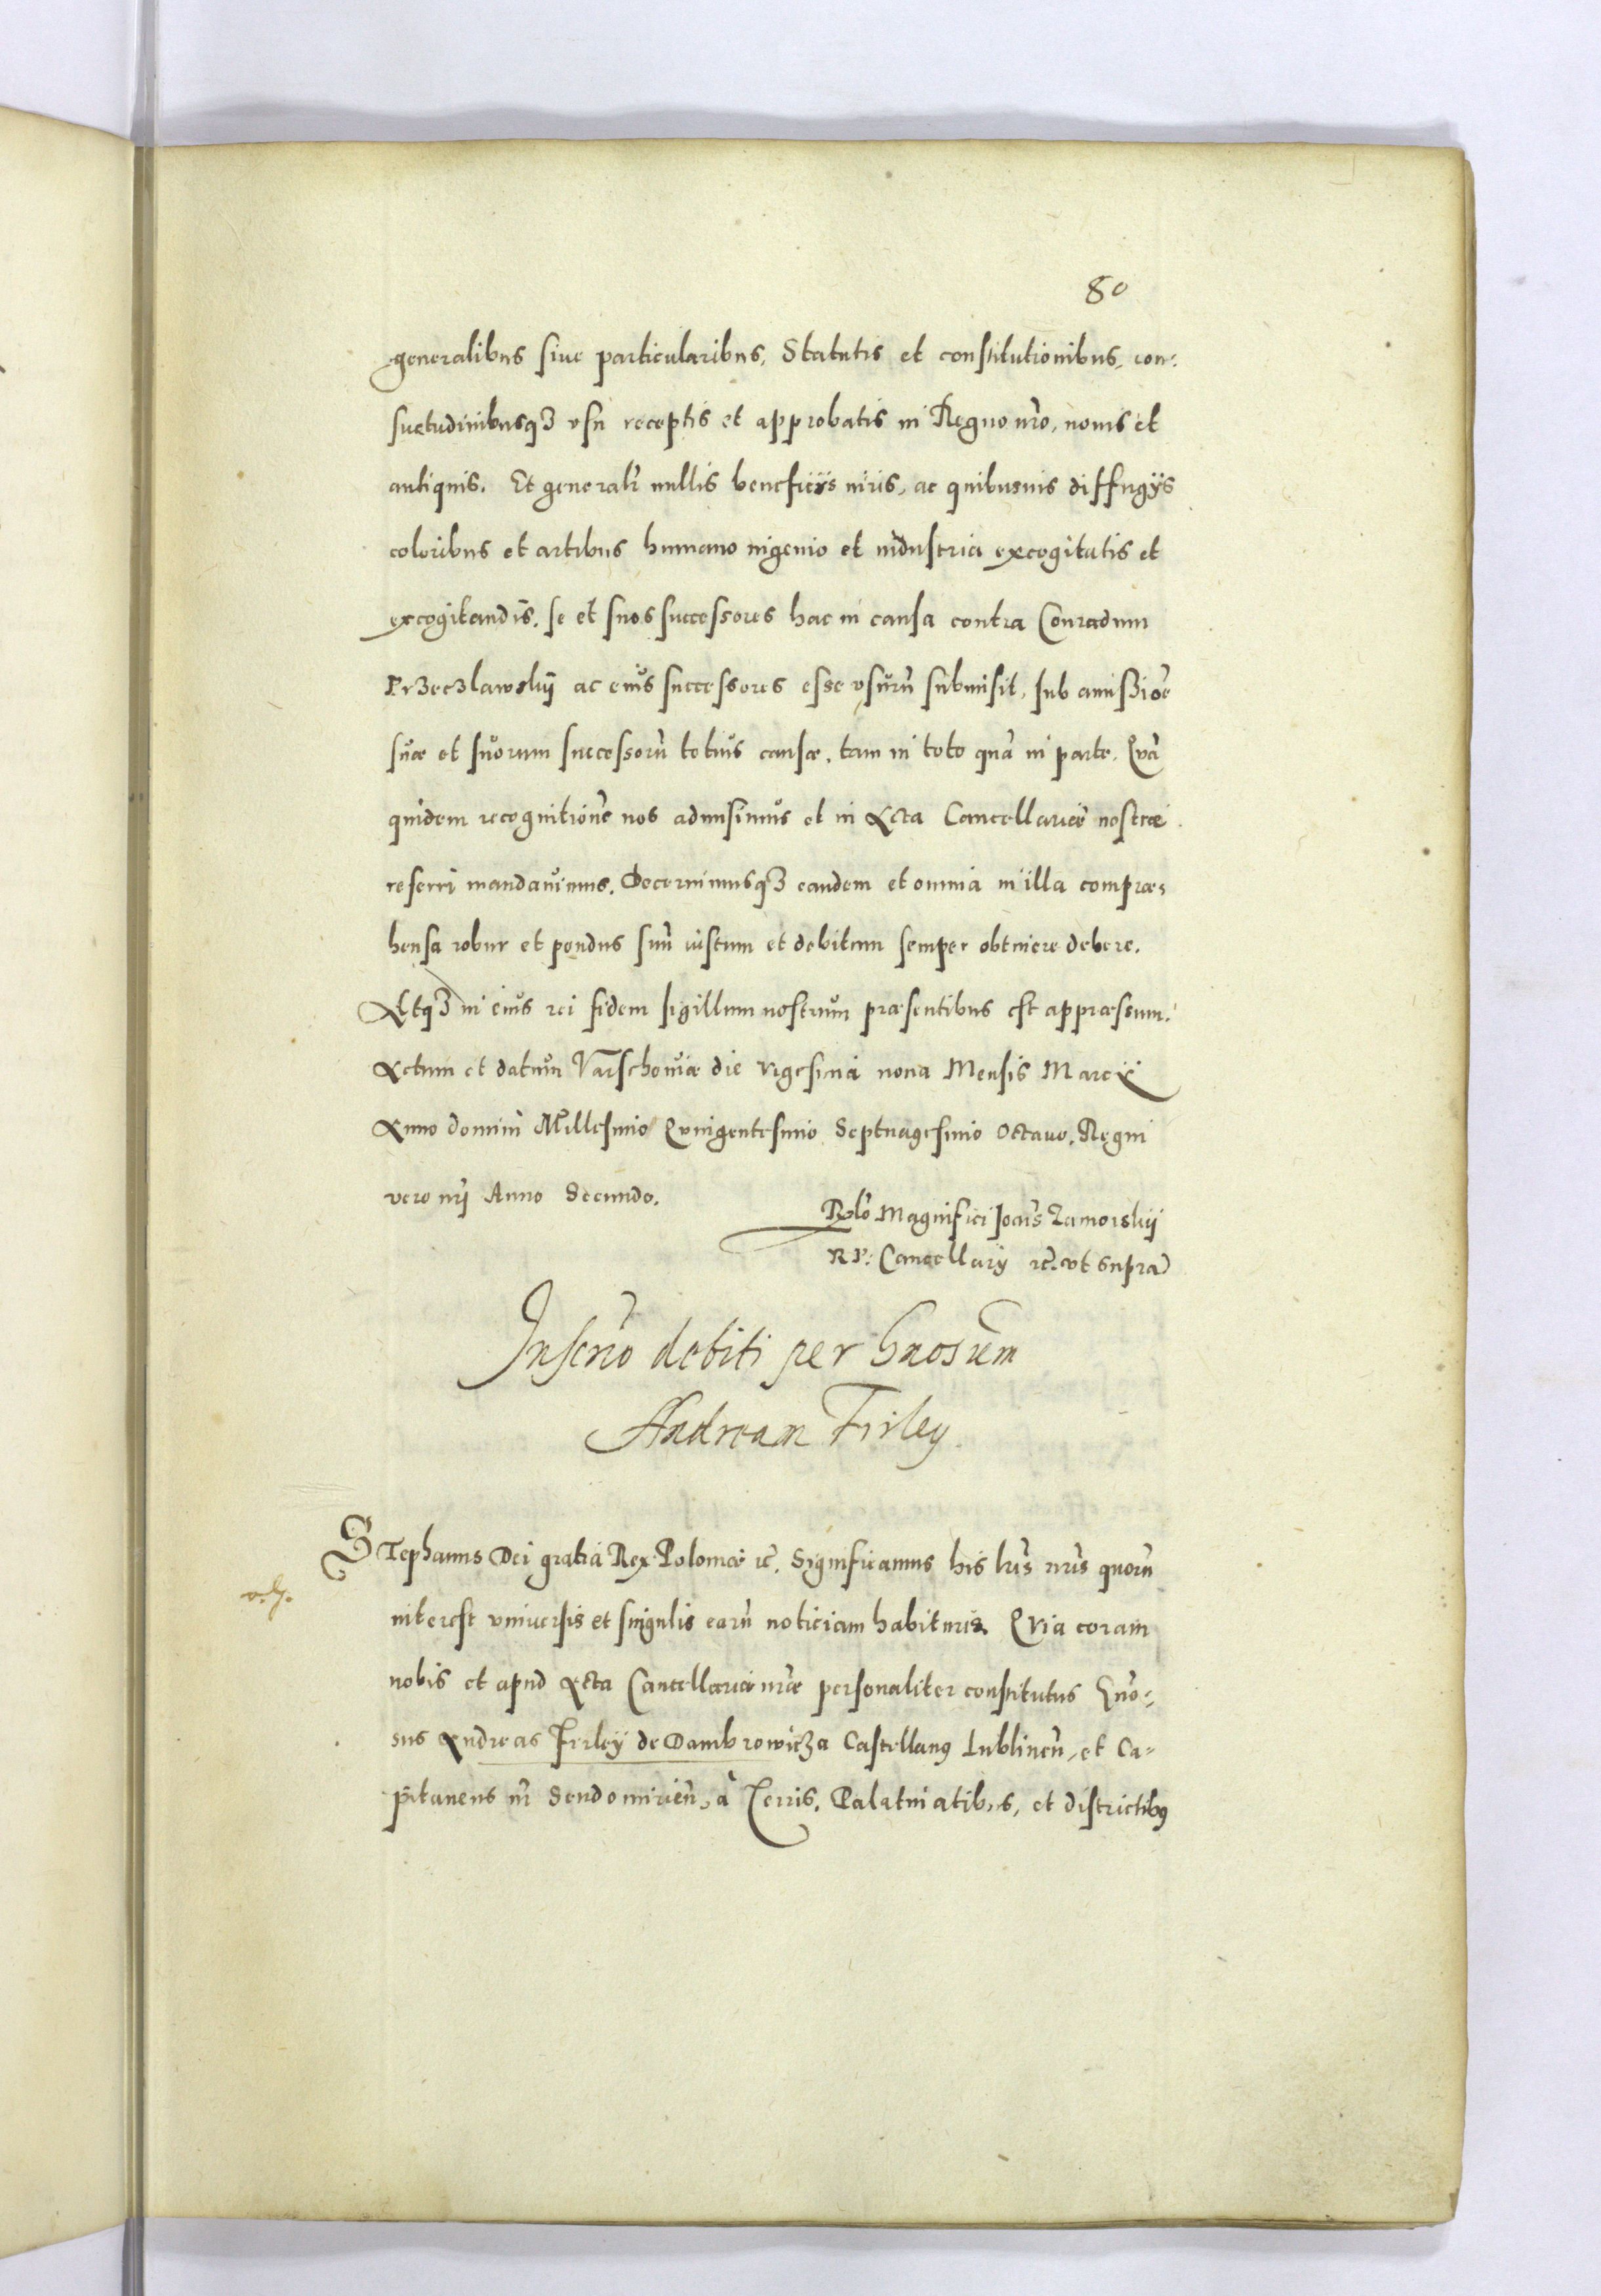 80
generalibus siue particularibus, Statutis et constitutionibus, con:
suetudinibusq3 vsu receptis et approbatis in Regno nr̃o, nouis et
antiquis. Et generalr̃ nullis beneficijs iuris, ac quibusuis diffugijs
coloribus et artibus humano ingenio et industria excogitatis et
excogitandis, se et suos successores hac in causa contra Conradum
Przeczlawskij ac eius successores esse vsurũ submisit, sub amissiõe
suæ et suorum successorũ totius causæ, tam in toto quã in parte. Quã
quidem recognitionẽ nos admisimus et in Acta Cancellariæ nostræ
referri mandauimus. Decernimusq3 eandem et omnia in illa compræ:
hensa robur et pondus suũ iustum et debitum semper obtinere debere.
Atq3 in eius rei fidem sigillum nostrum præsentibus est appræssum.
Actum et datum Varschouiæ die vigesima nona Mensis Marcij
Anno domini Millesimo Quingentesimo Septuagesimo Octauo, Regni
vero nr̃i Anno Secundo.
Rel̃o Magnifici Joañis Zamoiskij
R P: Cancellarij rc̃. vt supra
Inscrĩo debiti per Gnosum
Andream Firley
STephanus Dei gratia Rex Poloniæ rc̃. Significamus his lr̃is nr̃is quorũ
interest vniuersis et singulis earũ noticiam habituris. Quia coram
nobis et apud Acta Cancellariæ nr̃æ personaliter constitutus Gño:
sus Andreas Firleÿ de Dambrowicza Castellanus Lublineñ, et Ca-
pitaneus nr̃ Sendomirieñ, à Terris, Palatinatibus, et districtibus